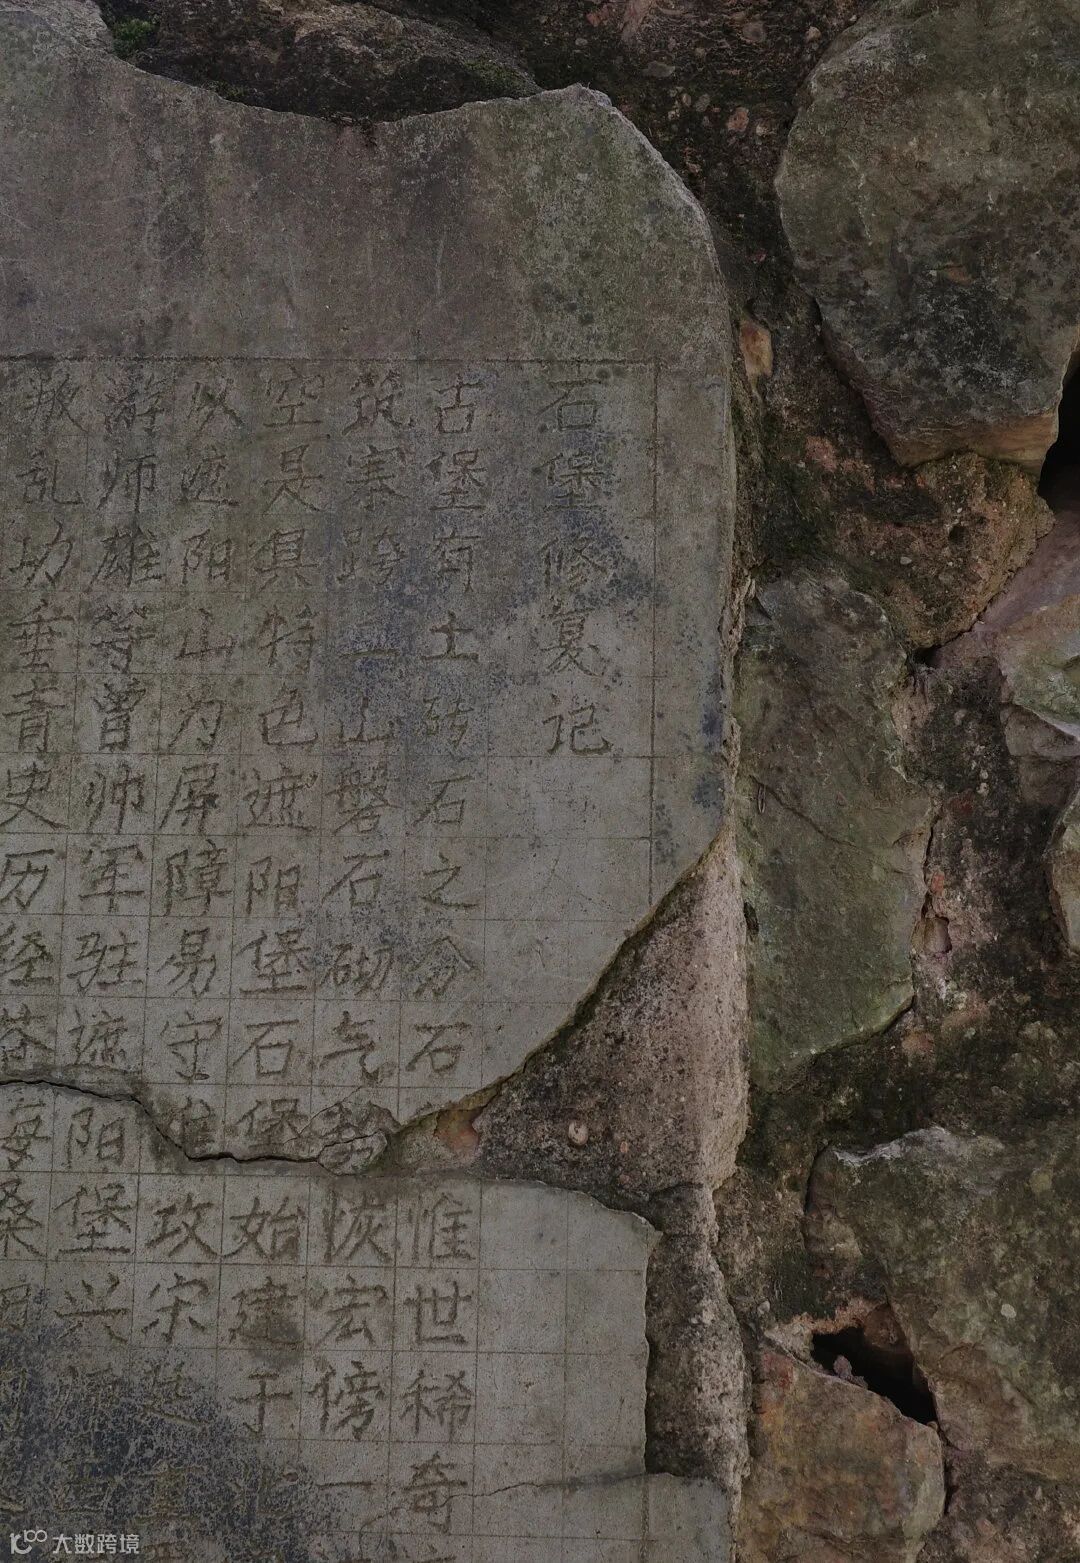 石堡修复记
古堡有土砖石之分石惟世稀奇
筑寨跨二山磐石砌气势恢宏傍一
空是具特色遮阳堡石堡始建于
以遮阳山为屏障易守难攻宋
游师雄等曾帅军驻遮阳堡兴
叛乱功垂青史历经苍海桑
大数跨境